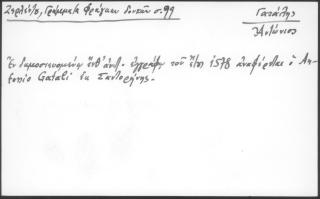 Ζερλέντη, Γράμματα Φράγκων Δουκῶν σ. 99
Γατάλης
Ἀντώνιος
Ἐν δημοσιευομένῳ ἐγγράφῳ τοῦ ἔτους 1578 ἀναφέρεται ὁ An-
tonio Gatati ἐκ Σαντορήνης.